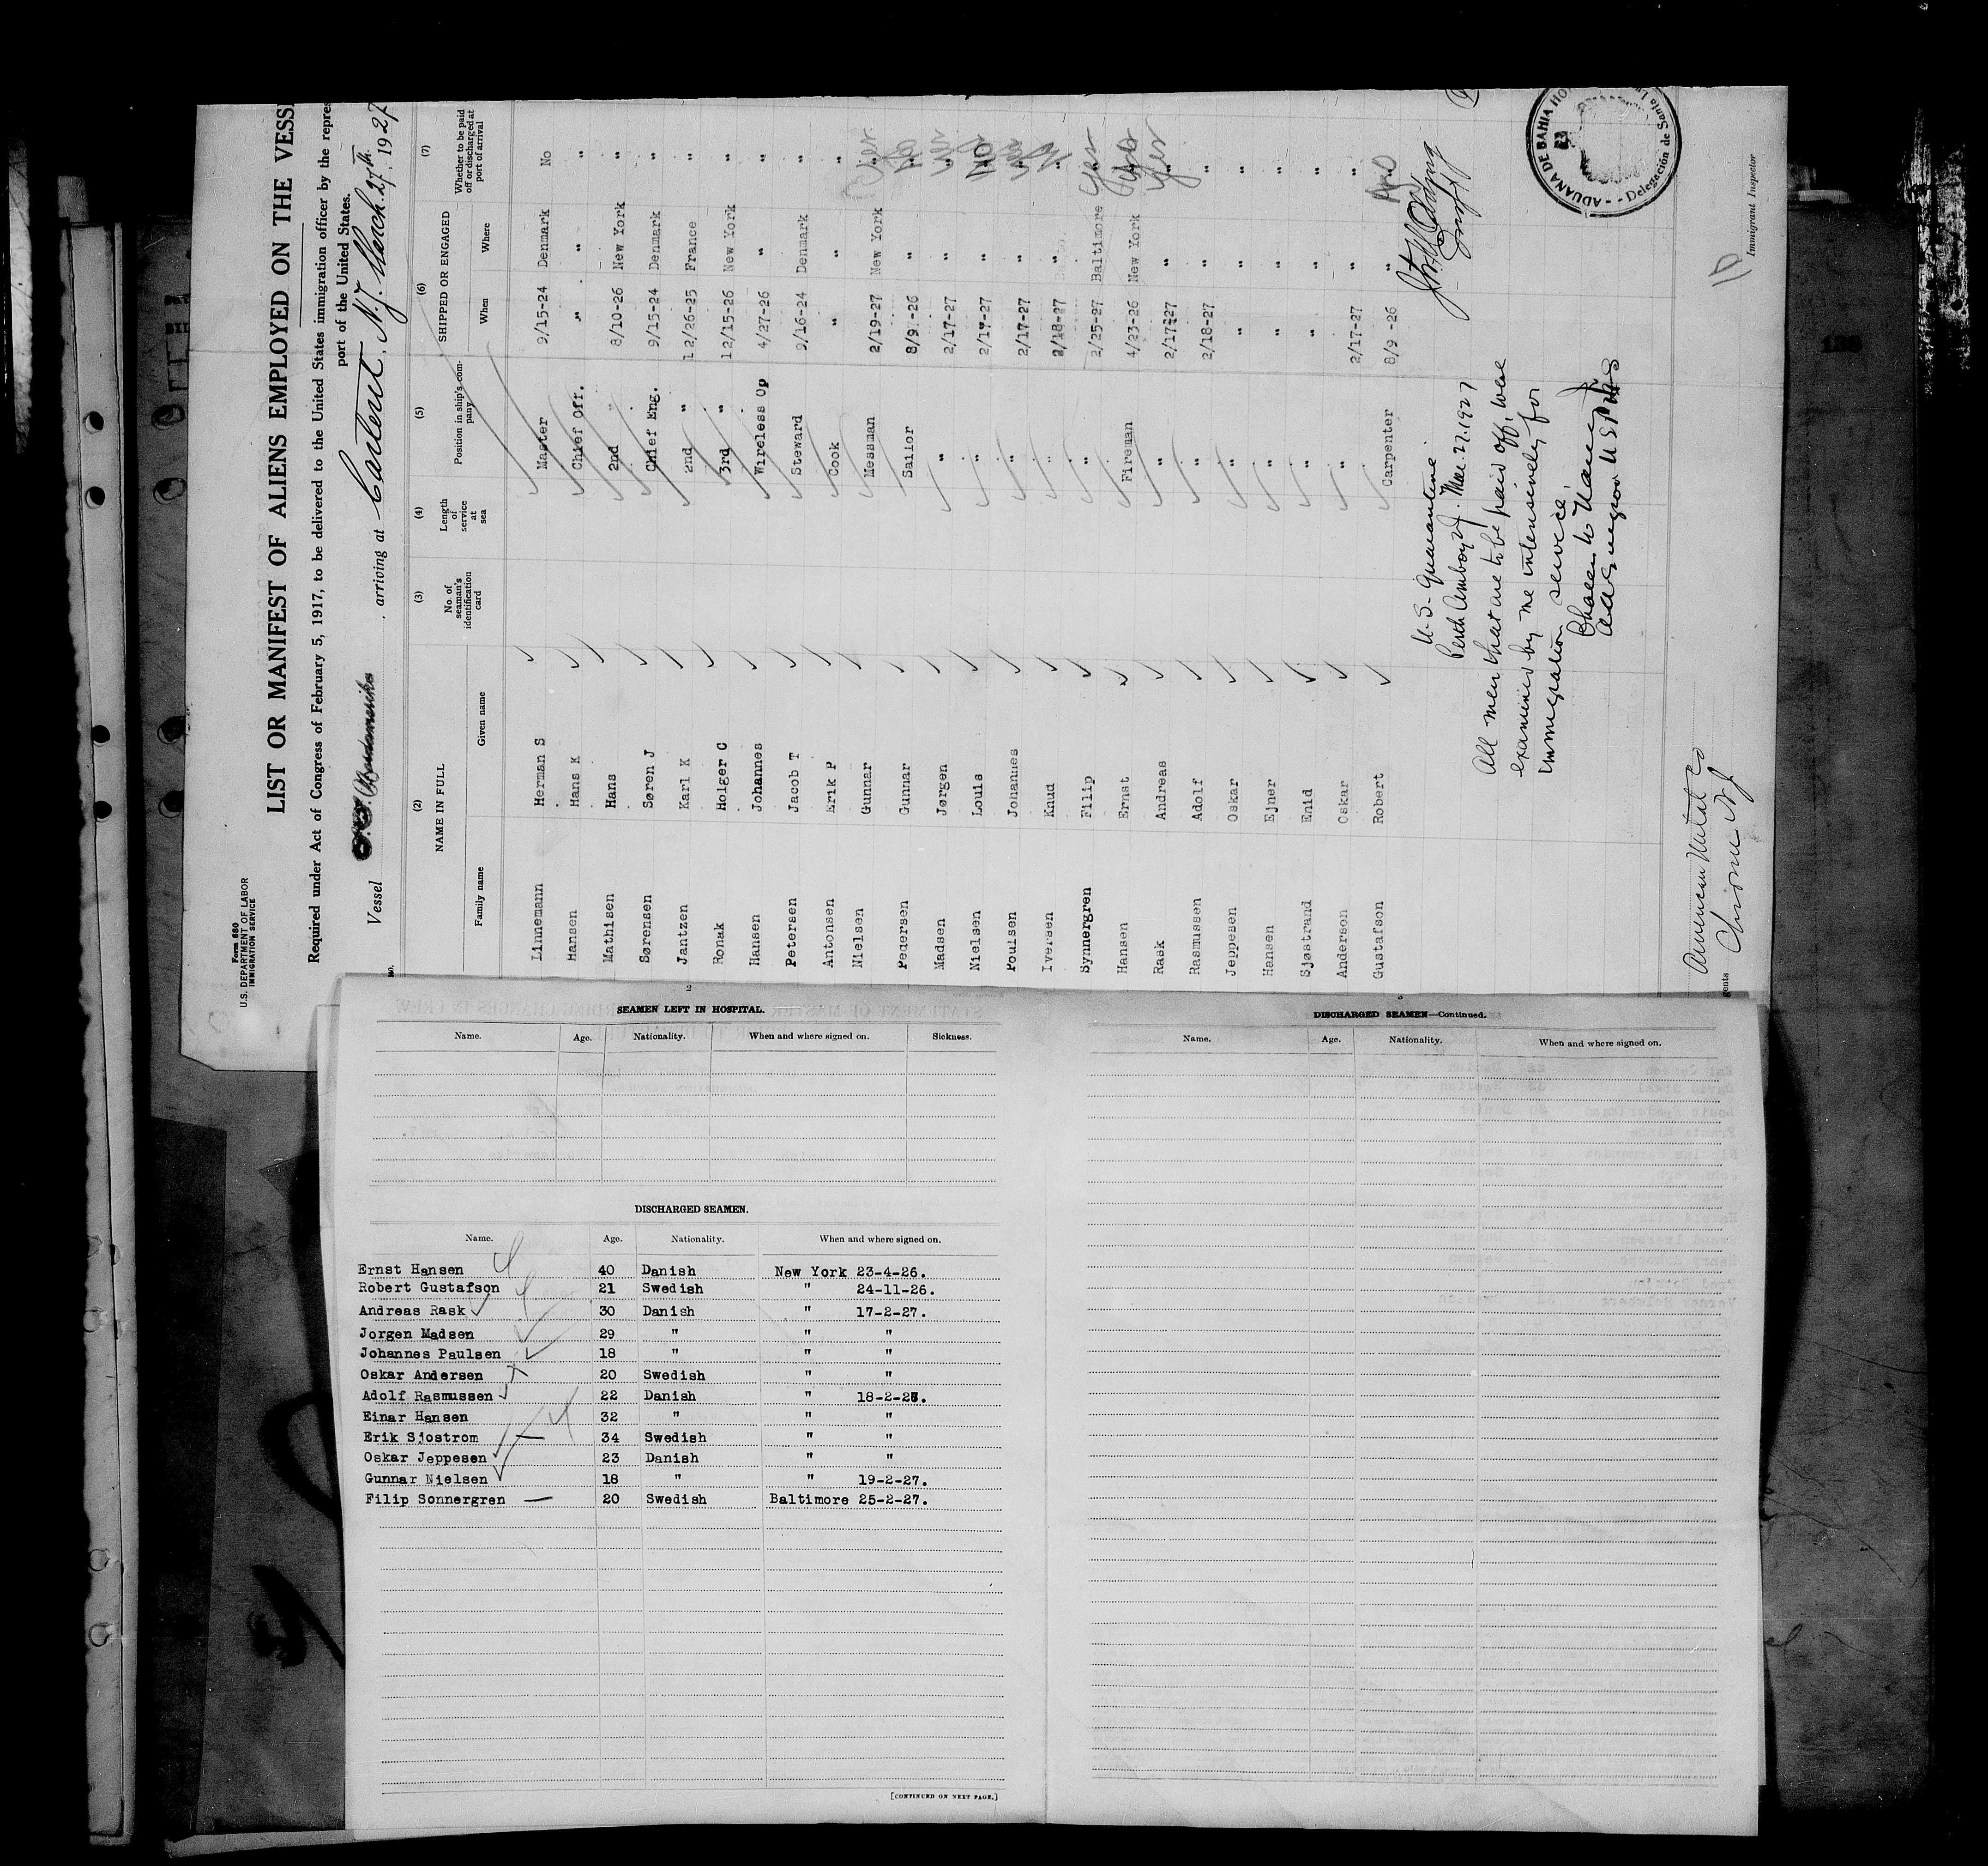 Form 680
U.S. DEPARTMENT OF LABOR
IMMIGRATION SERVICE
LIST OR MANIFEST OF ALIENS EMPLOYED ON THE VESS
Required under Act of Congress of February 5, 1917, to be delivered to the United States immigration officer by the repres
port of the United States.
Vessel S.S. arriving at Carteret, N.J. March 27th, 1927
(2) (3) (4) (5) (6) (7)
NAME IN FULL
Family name Given name
No. of seaman's identification card
Length of service at sea
Position in ship's company
SHIPPED OR ENGAGED
When Where
Whether to be paid off or discharged at port of arrival
Linnemann Herman S Master 9/15-24 Denmark No
Hansen Hans K Chief Off. " " "
Mathisen Hans 2nd " 8/10-26 New York "
Sørensen Søren J Chief Eng. 9/15-24 Denmark "
Jantzen Karl K 2nd " 12/26-25 France "
Ronak Holger C 3rd " 12/15-26 New York "
Hansen Johannes Wireless Op 4/27-26 " "
Petersen Jacob T Steward 9/16-24 Denmark "
Antonsen Erik P Cook " "
Nielsen Gunnar Messman 2/19-27 New York " Yes
Pedersen Gunnar Sailor 8/9-26 " "
Madsen Jørgen " 2/17-27 " "
Nielsen Louis " 2/17-27 " " No
Poulsen Johannes " 2/17-27 " "
Iversen Knud " 2/18-27 " "
Synnergren Filip " 2/25-27 Baltimore " Yes
Hansen Ernst Fireman 4/23-26 New York "
Rask Andreas " 2/17-27 " " Yes
Rasmussen Adolf " 2/18-27 " "
Jeppesen Oskar " " " "
Hansen Ejner " " " "
Sjøstrand Enid " " " "
Anderson Oskar " 2/17-27 " "
Gustafson Robert Carpenter 8/9-26 " " No
U.S. Quarantine
Perth Amboy N.J. Mar. 27. 1927
All men that are to be paid off, were
examined by me intensively for
immigration service.
ADUANA DE BAHIA HO
Delegación de Santa Lu
Immigrant Inspector
American Metal Co
Chrome N.J.
gents
2
SEAMEN LEFT IN HOSPITAL.
Name. Age. Nationality. When and where signed on. Sickness.
DISCHARGED SEAMEN.
Name. Age. Nationality. When and where signed on.
Ernst Hansen 40 Danish New York 23-4-26.
Robert Gustafson 21 Swedish " 24-11-26.
Andreas Rask 30 Danish " 17-2-27.
Jorgen Madsen 29 " " "
Johannes Paulsen 18 " " "
Oskar Andersen 20 Swedish " "
Adolf Rasmussen 22 Danish " 18-2-27.
Einar Hansen 32 " " "
Erik Sjostrom 34 Swedish " "
Oskar Jeppesen 23 Danish " "
Gunnar Nielsen 18 " " 19-2-27.
Filip Sonnergren 20 Swedish Baltimore 25-2-27.
[CONTINUED ON NEXT PAGE.]
3
DISCHARGED SEAMEN—Continued.
Name. Age. Nationality. When and where signed on.